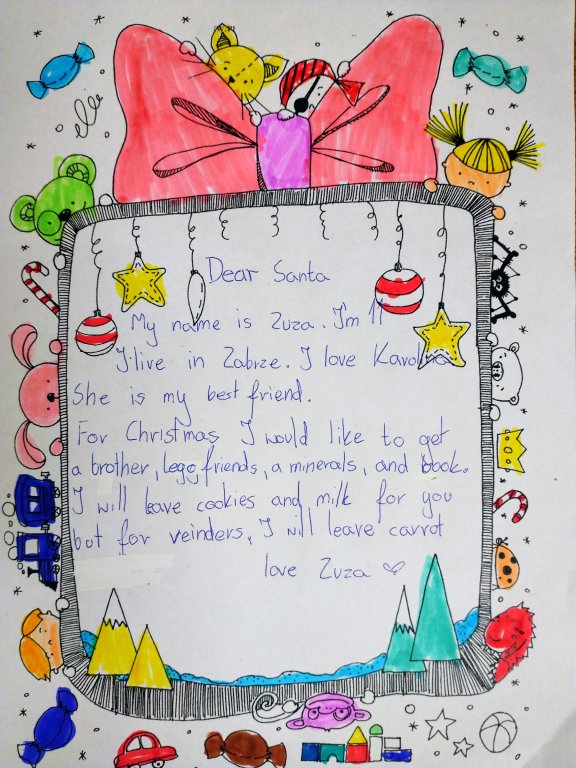 Dear Santa
My name is Zuza. I'm 11
I live in Zabrze. I love Karolina
She is my best friend.
For Christmas I would like to get
a brother, lego friends, a minerals, and book.
I will leave cookies and milk for you
but for reinders, I will leave carrot
love Zuza